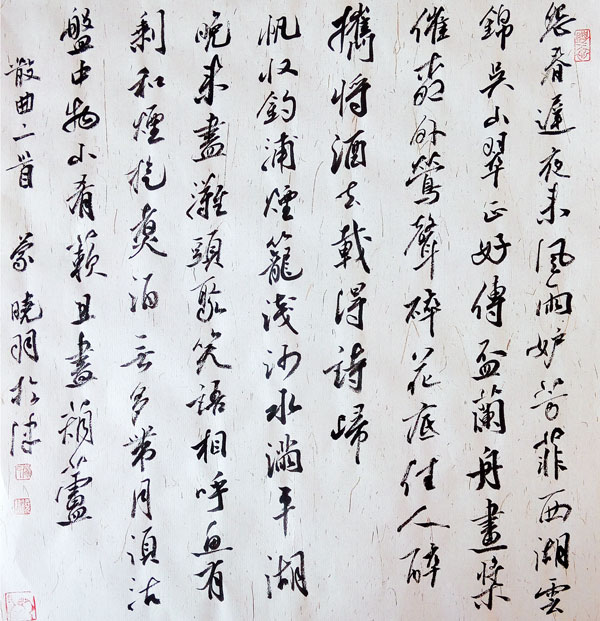 怨春遲夜來風雨妒芳菲西湖雲
錦吳山翠正好傳盃蘭舟畫槳
催外鶯聲碎花底佳人醉
攜將酒去載得詩歸
帆收釣浦煙籠淺沙水滿平湖
晚來盡灘頭聚笑語相呼魚有
剩和煙旋煑酒無多帶月須沽
盤中物山肴蔌且盡葫蘆
散曲二首 曉明於津